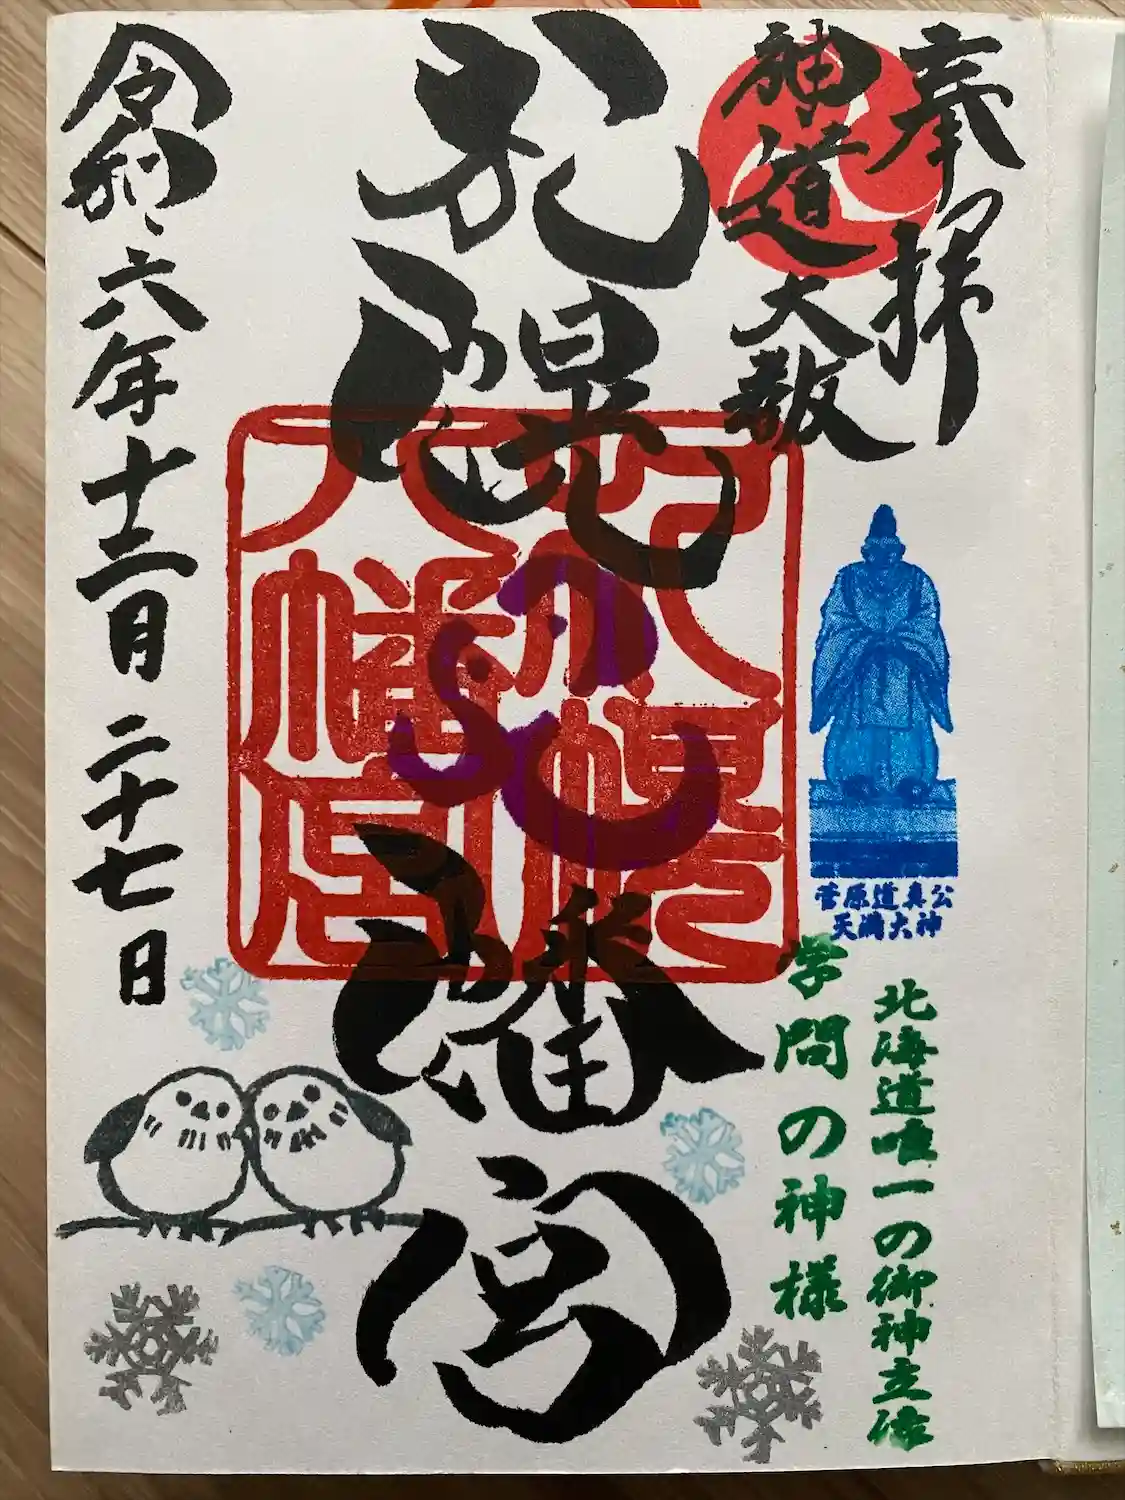 奉拝
神道大教
菅原道真公
天満大神
北海道唯一の御神立像
学問の神様
札幌八幡宮
令和六年十二月二十七日